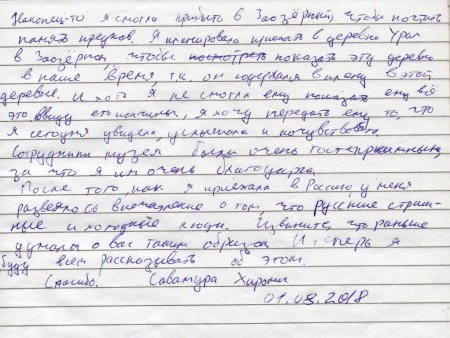 Наконец-то я смогла прибыть в Заозёрный, чтобы почтить
память предков. Я планировала приехать в деревню Урал
в Заозёрном, чтобы посмотреть показать эту деревню
в наше время, т.к. он содержался в плену в этой
деревне. И хоть я не смогла ему показать ему всё
это ввиду его кончины, я хочу передать ему то, что
я сегодня увидела, услышала и почувствовала.
Сотрудники музея были очень гостеприимны,
за что я им очень благодарна.
После того, как я приехала в Расию, у меня
развеялось впечатление о том, что русские страш-
ные и холодные люди. Извините, что раньше
думала о вас таким образом. И теперь я
буду всем рассказывать об этом.
Спасибо. Савамура Хироми
01.08.2018